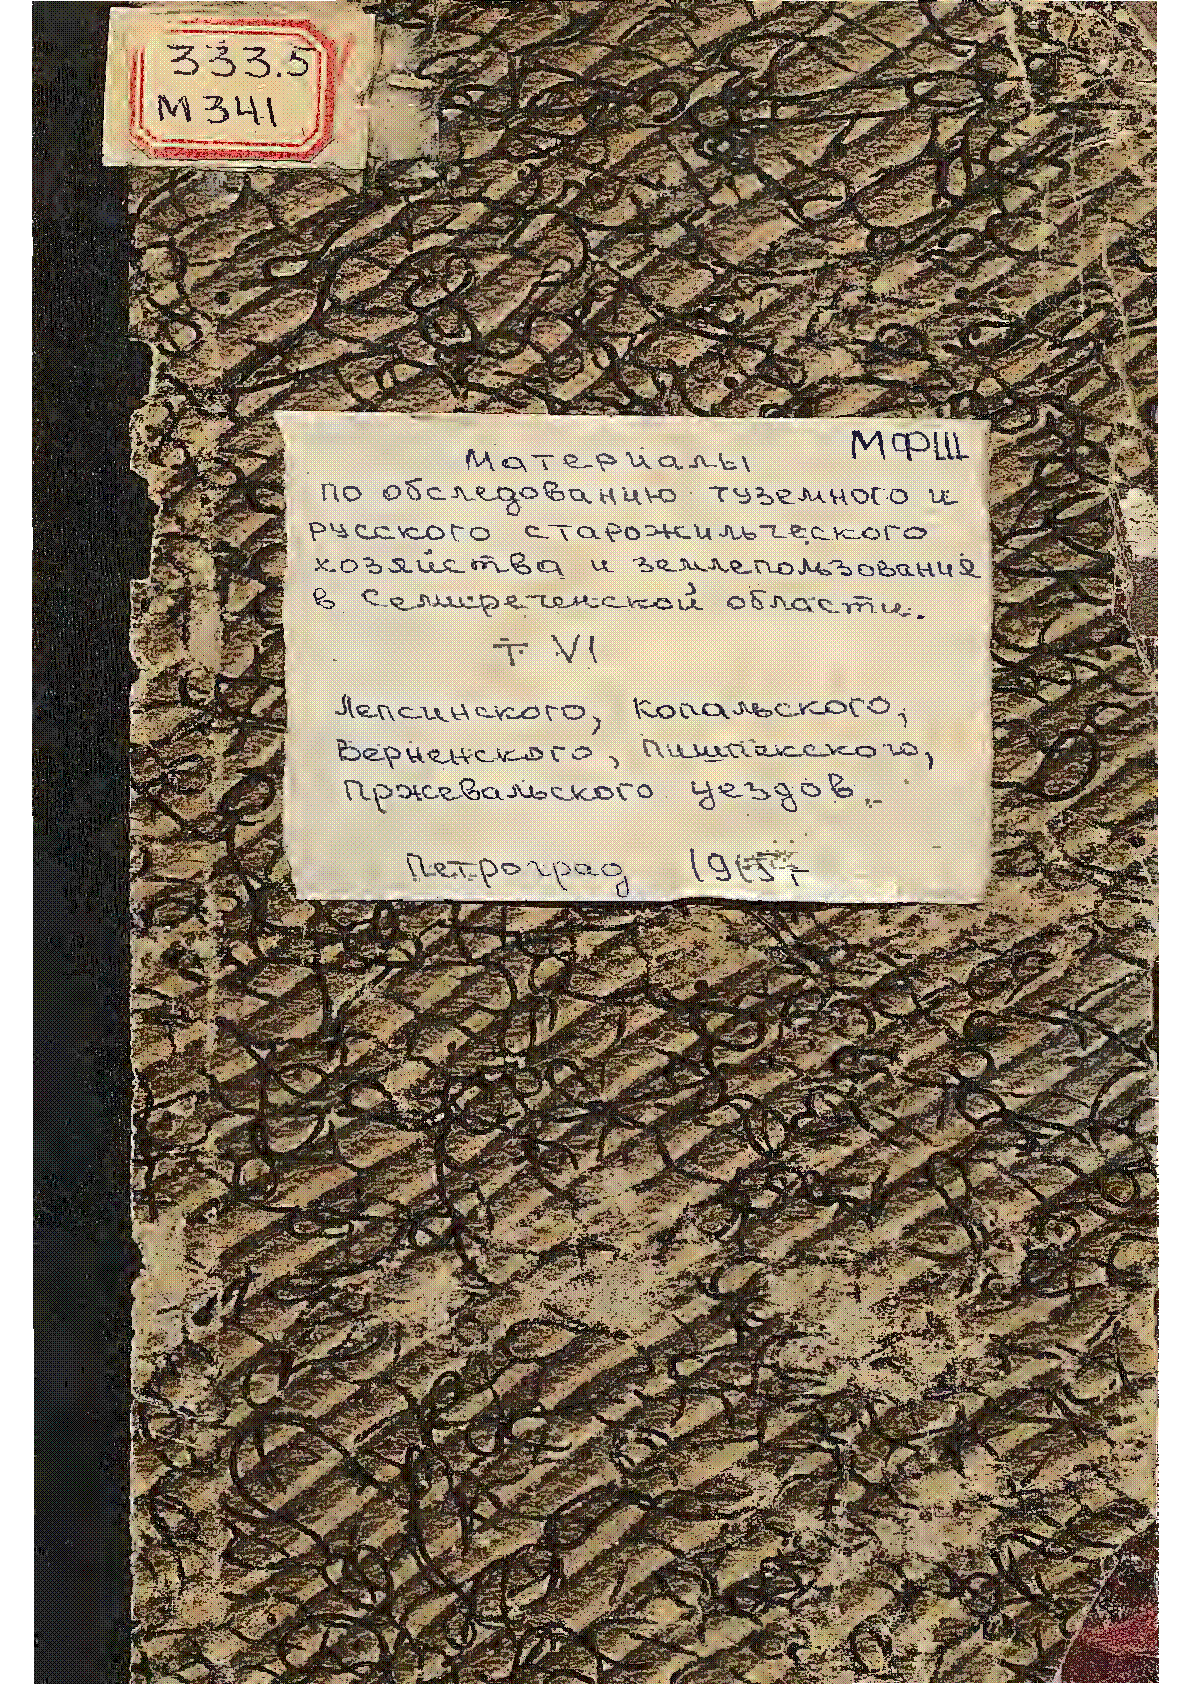 333.5
М 341
МФШ
Материалы
по обследованию туземного и
русского старожильческого
хозяйства и землепользования
в Семиреченской области.
т. VI
Лепсинского, Копальского,
Верненского, Пишпекского,
Пржевальского уездов.
Петроград 1915 г